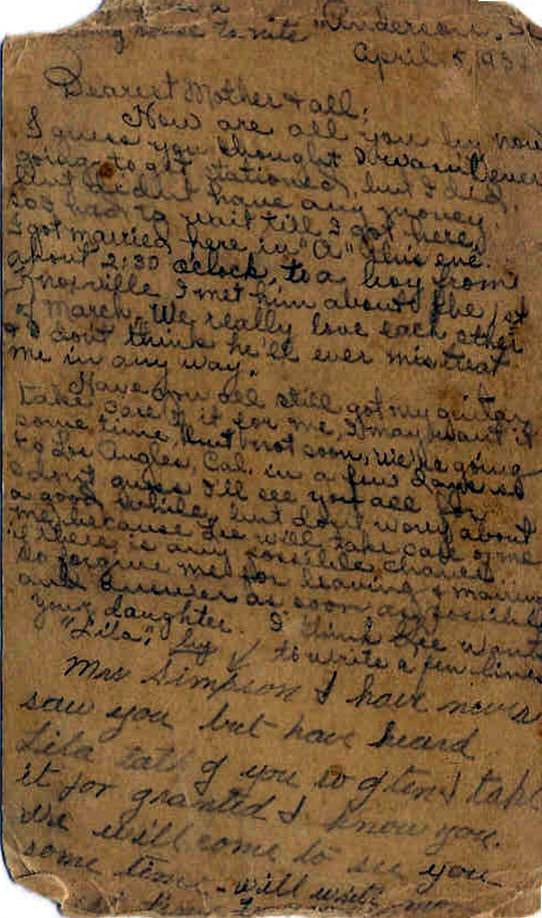 "Anderson,
ing house to nite
April 5, 193
Dearest Mother & all;
How are all you by now
I guess you thought I wasn't ever
going to get stationed, but I did,
but didn't have any money,
so I had to wait till I got here,
I got married here in "A" this eve.
about 2:30 o'clock, to a boy from
Knoxville, I met him about the 1st
of March. We really love each other
& I don't think he'll ever mistreat
me in any way.
Have you all still got my guitar
take care of it for me, I may want it
some time, but not soon, We're going
to Los Angles, Cal. in a few days so
I don't guess I'll see you all for
a good while, but don't worry about
me, because will take care of me
if there is any possible chance.
So forgive me for leaving & marrying
and answer as soon as possible
your daughter. I think wants
"Lila", to write a few lines
Mrs Simpson I have never
saw you but have heard
Lila talk of you so often I take
it for granted I know you.
We will come to see you
some time - will write